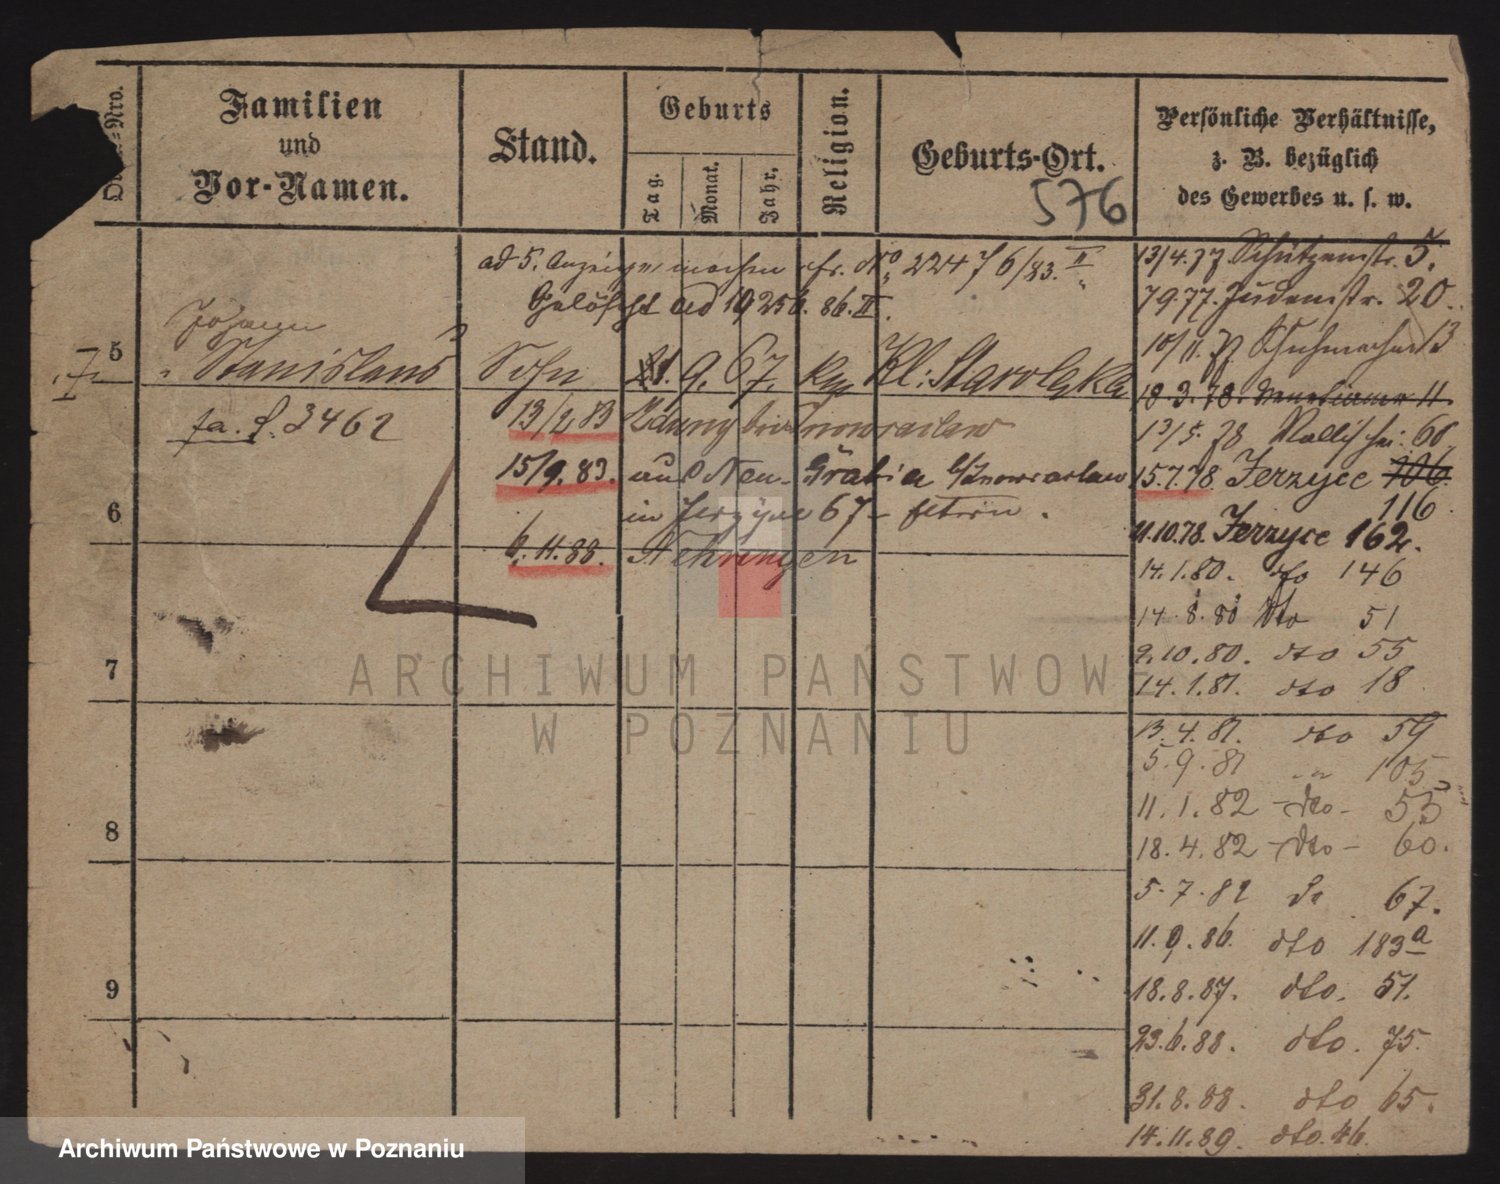 Nro.
Familien
und
Vor-Namen.
Stand.
Geburts
Tag.
Monat.
Jahr.
Religion.
Geburts-Ort.
576
Persönliche Verhältnisse,
z. B. bezüglich
des Gewerbes u. s. w.
ad 5. Anzeige machen cfr. No 22476/83. II
Gelöscht ad 19256. 86. II.
13/4.77 Schützenstr. 5.
7.9.77. Judenstr. 20.
Johann
5
Stanislaus
Sohn
21. 9. 67. Kl: Starolenka
10/11. 77 Schuhmacherst 13
18. 3. 78. Venetianer 11.
fa. f. 3462
13/2 83
Inowraclaw
13/5. 78 Wallischei: 66
15/9. 83. aus Neu-Grabia b/Inowraclaw
15.7.78 Jerzyce 106
116
in Jerzyce 67
6
11.10.78. Jerzyce 162.
6. 11. 88. Nehringen
14. 1. 80. dto 146
14. 8. 80 dto 51
9. 10. 80. dto 55
7
14. 1. 81. dto 18
13. 4. 81. dto 59
5. 9. 81 105
11. 1. 82 - dto - 53
8
18. 4. 82 - dto - 60.
5. 7. 82 do 67.
11. 9. 86. dto 183a
9
18. 8. 87. dto. 51.
23. 6. 88. dto. 75.
31. 8. 88. dto 65.
14. 11. 89. dto. 46.
ARCHIWUM PAŃSTWOW
W POZNANIU
Archiwum Państwowe w Poznaniu